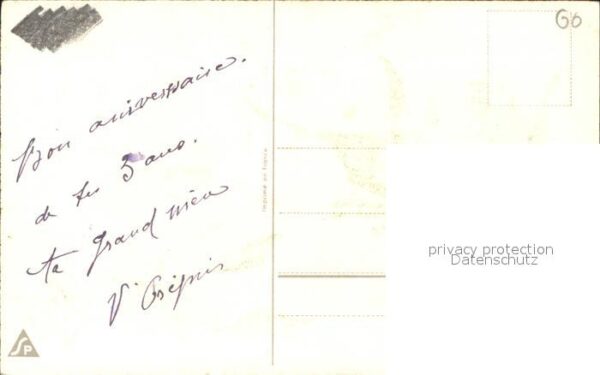 G6
Bon aniverssaire.
de tes 3 ans.
ta grand mère
V.
Imprimé en France
privacy protection
Datenschutz
SP